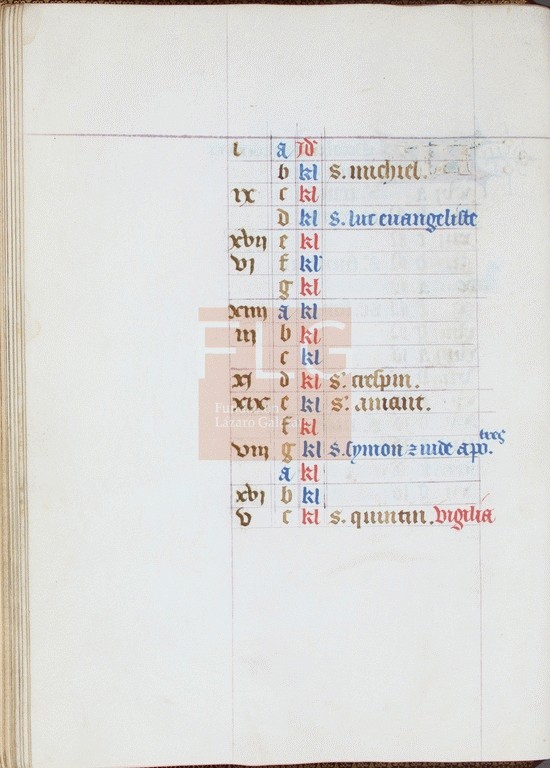 i a jd'
b kl s. michiel.
ix c kl
d kl s. luc euangeliste
xvii e kl
vj f kl
g kl
xiiij a kl
iij b kl
c kl
xj d kl s' crespin.
xix e kl s' amant.
f kl
viij g kl s. symon z iude apo.tres
a kl
xvj b kl
v c kl s. quintin. vigilia
FLG
Fundación
Lázaro Galdiano